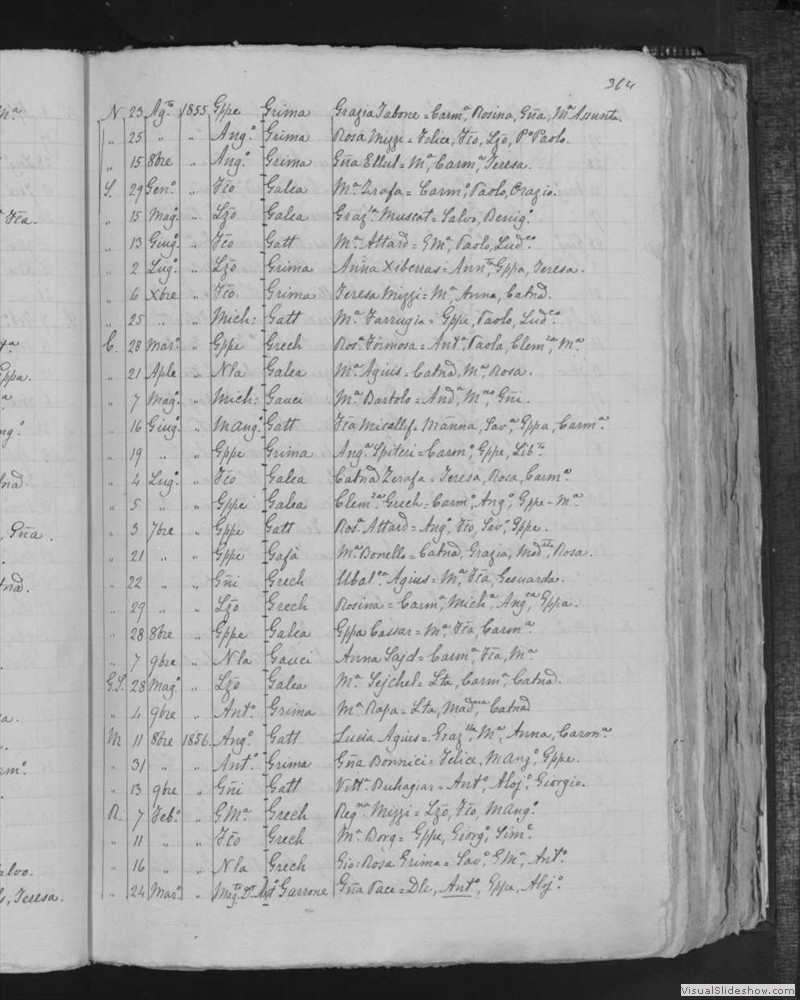 364
N 23 Agto 1855 Gppe Grima Grazia Tabone = Carma, Rosina, Gña, Ma Assunta
" 25 " " Ango Grima Rosa Mizzi = Felice, Fco, Lzo, Po Paolo.
" 15 8bre " Ango Grima Gña Ellul = Ma, Carma, Teresa.
S. 29 Geno " Fco Galea Ma Zrafa = Carmo, Paolo, Orazio.
" 15 Mago " Lzo Galea Muscat = Salvo, Benigo
" 13 Giugo " Fco Gatt Ma Attard = GMa, Paolo, Ludco
" 2 Lugo " Lzo Grima Anna Xiberras = Annta, Gppa, Teresa.
" 6 Xbre " Fco Grima Teresa Mizzi = Ma, Anna, Catnã.
" 25 " " Mich: Gatt Ma Farrugia = Gppe, Paolo, Ludco
C. 28 Maro " Gppe Grech Rosa Formosa = Anta, Paola, Clemza, Ma
" 21 Aple " Nla Galea Ma Agius = Catnã, Ma, Rosa.
" 7 Mago " Mich: Gauci Ma Bartolo = Anda, Gñi.
" 16 Giugo " Mango Gatt Fca Micallef = Manna, Sava, Gppa, Carma
" 19 " " Gppe Grima Anga Spiteri = Carmo, Gppe, Libta
" 4 Lugo " Fco Galea Catnã Zerafa = Teresa, Rosa, Carma
" 5 " " Gppe Galea Clemza Grech = Carmo, Ango, Gppe - Ma
" 3 7bre " Gppe Gatt Rosa Attard = Ango, Fco, Savo, Gppe.
" 21 " " Gppe Gafà Ma Bonello = Catnã, Grazia, Rosa
" 22 " " Gñi Grech Agius = Ma, Fca, Gesuarda.
" 29 " " Lzo Grech Rosina = Carma, Micha, Gppa.
" 28 8bre " Gppe Galea Gppa Cassar = Ma, Fca, Carma
" 7 9bre " Nla Gauci Anna Sajd = Carma, Fca, Ma
G.S. 28 Mago " Lzo Galea Ma Sejchel = Lta, Carma, Catnã.
" 4 9bre " Anto Grima Ma Rapa = Lta, Catnã
M 11 8bre 1856 Ango Gatt Lucia Agius = Ma, Anna, Carona
" 31 " " Anto Grima Gña Bonnici = Felice, Mango, Gppe.
" 13 9bre " Gñi Gatt Vitta Buhagiar = Anto, Alojo, Giorgio.
R. 7 Febo " GMa Grech Regna Mizzi = Lzo, Fco, Mango
" 11 " " Fco Grech Ma Borg = Gppe, Giorgo, Simo
" 16 " " Nla Grech Gio: Rosa Grima = Savo, GMa, Anto
" 24 Maro " Dr. Anto Garrone Gña Pace = Anto, Gppe, Alojo
ma
Fca.
ta
Gppa.
a
ngo
tnã.
, Gña.
tnã.
a.
rmo
alvo.
s, Teresa.
VisualSlideshow.com